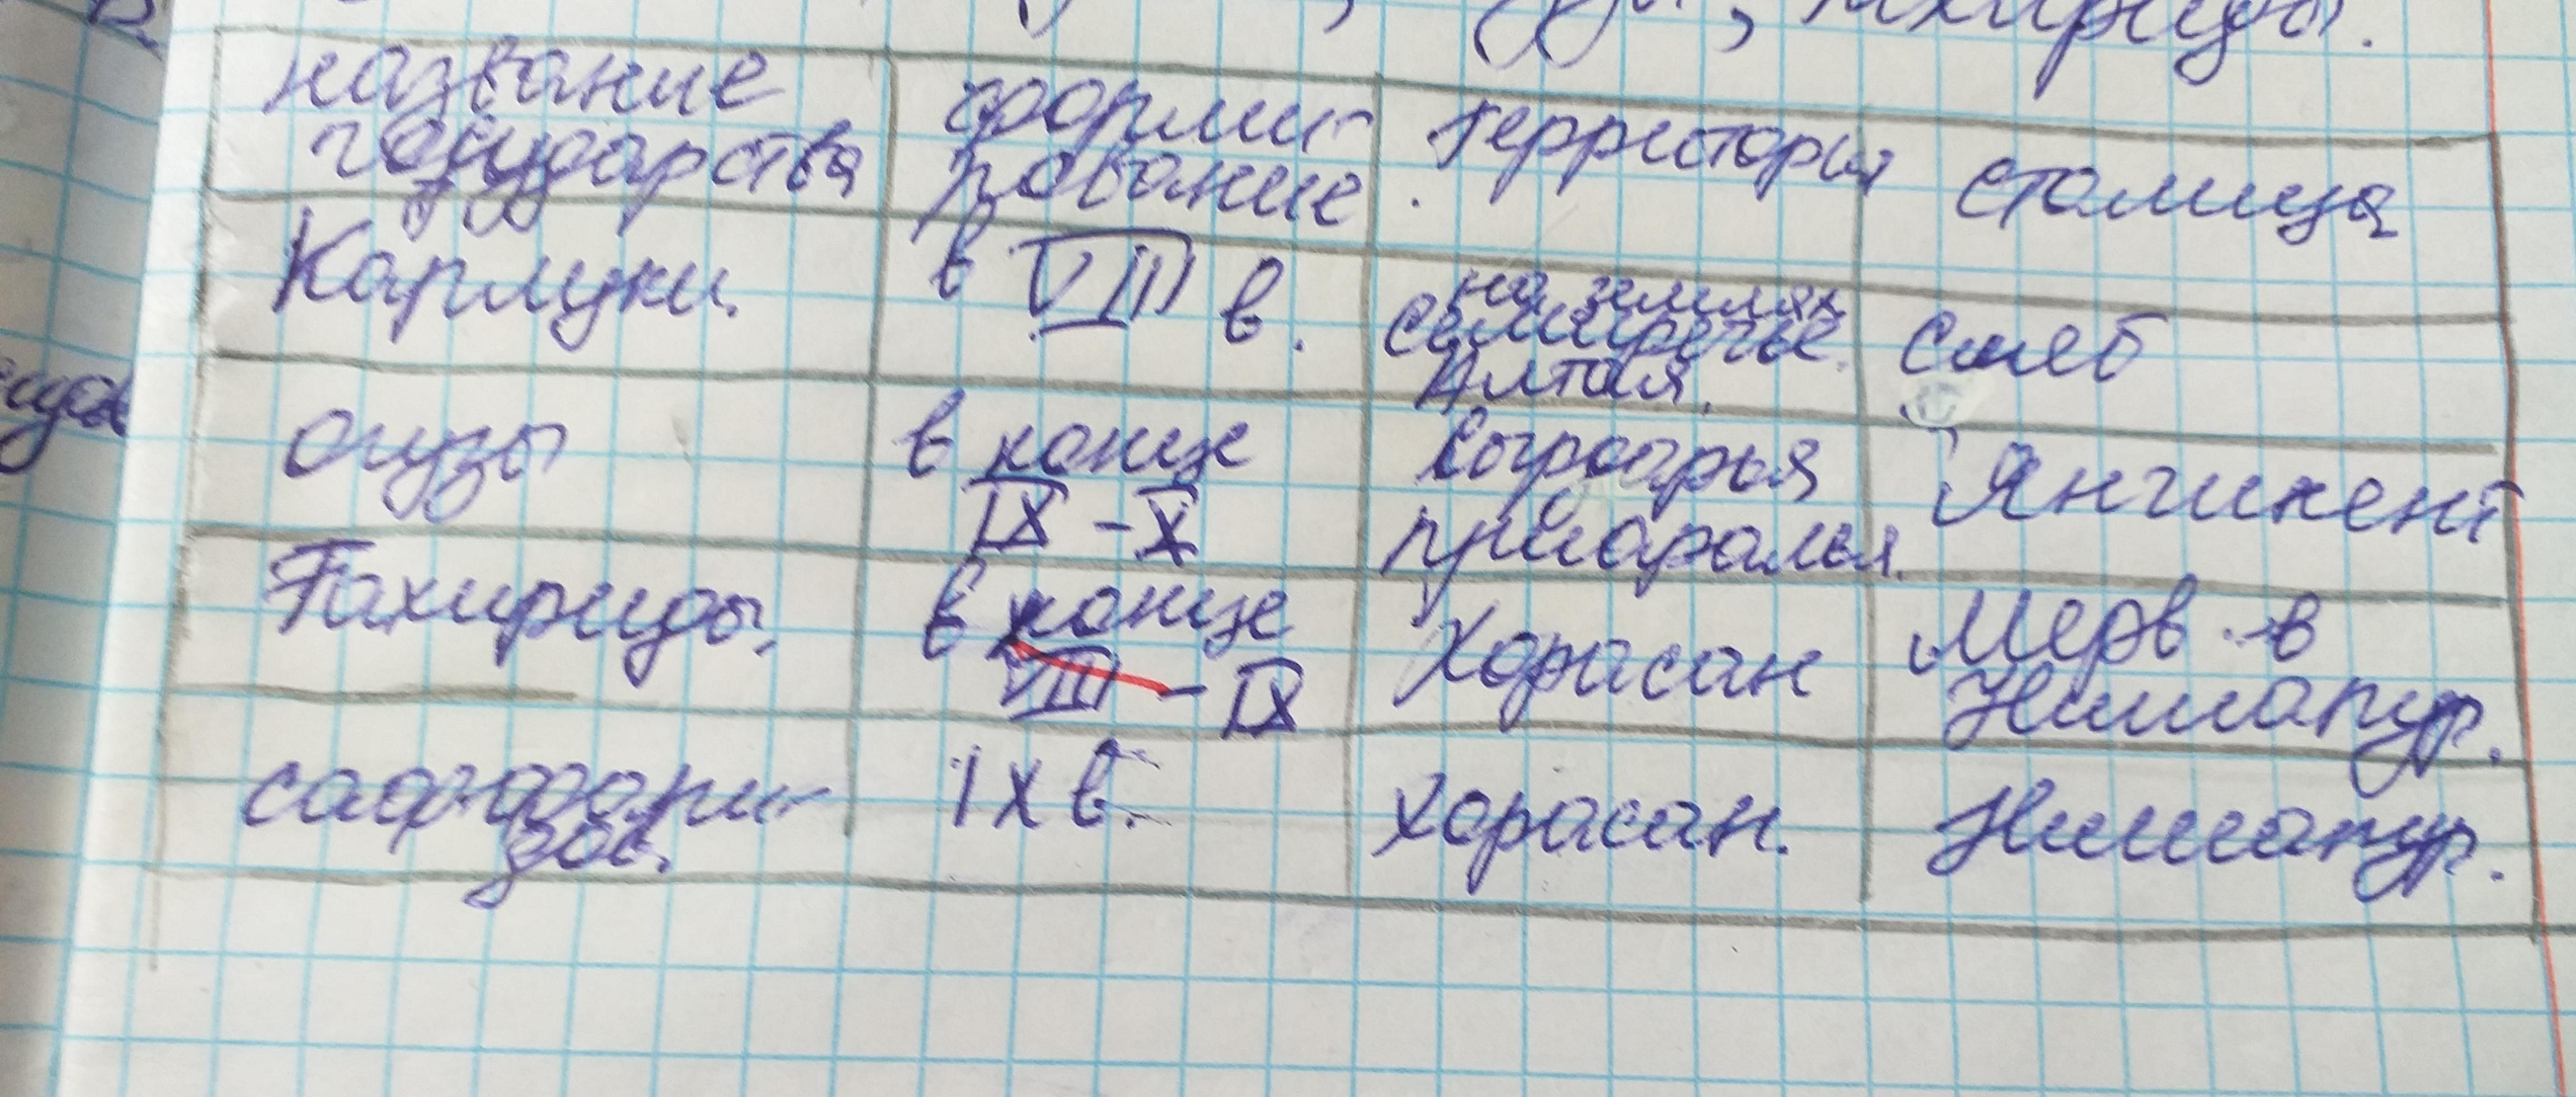 , тахириды.
название государства | форми-рование | территория | столица
Карлуки. | в VIII в. | на землях семиречье. Алтая. | Суяб
огузы | в конце IX - X | Сырдарья приаралья. | Янгикент
Тахириды. | в конце VIII - IX | Хорасан | Мерв в Нишапур.
саффари- | IX в. | Хорасан. | Нишапур.